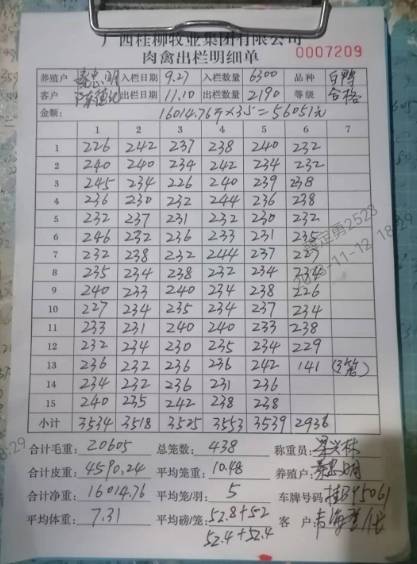 广西桂柳牧业集团有限公司
肉禽出栏明细单 0007209
养殖户 入栏日期 9.27 入栏数量 6300 品种 白鸭
客户 出栏日期 11.10 出栏数量 2190 等级 合格
金额: 16014.76斤×3.5=56051元
1 2 3 4 5 6 7
1 226 242 237 238 240 232
2 240 240 234 242 234 232
3 245 234 226 240 239 238
4 236 230 232 244 236 238
5 232 237 231 232 230 232
6 246 232 236 233 231 235
7 232 238 232 244 237 227
8 235 234 238 232 234 234
9 240 233 240 234 238 226
10 227 234 235 234 237 234
11 233 231 240 240 233 238
12 232 234 230 235 234 229
13 236 232 236 236 242 141 (3笼)
14 234 232 236 231 236
15 240 235 242 238 238
小计 3534 3518 3525 3553 3539 2936
合计毛重: 20605 总笼数: 438 称重员:
合计皮重: 4590.24 平均笼重: 10.48 养殖户:
合计净重: 16014.76 平均笼/羽: 5 车牌号码
平均体重: 7.31 平均磅/笼: 52.8+52 客 户:
52.4+52.4